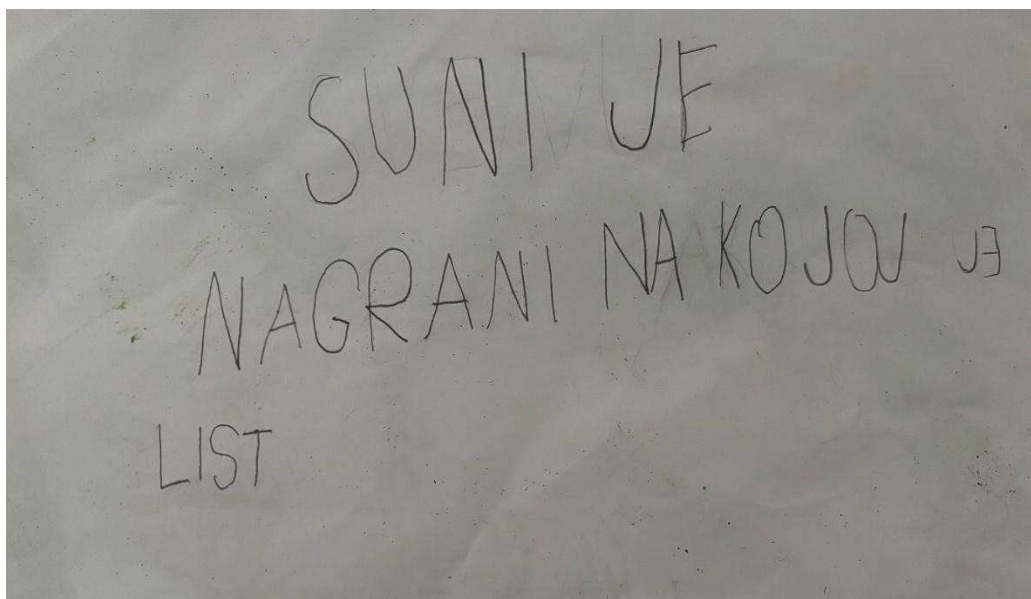 SUNI JE
NAGRANI NA KOJOJ JE
LIST